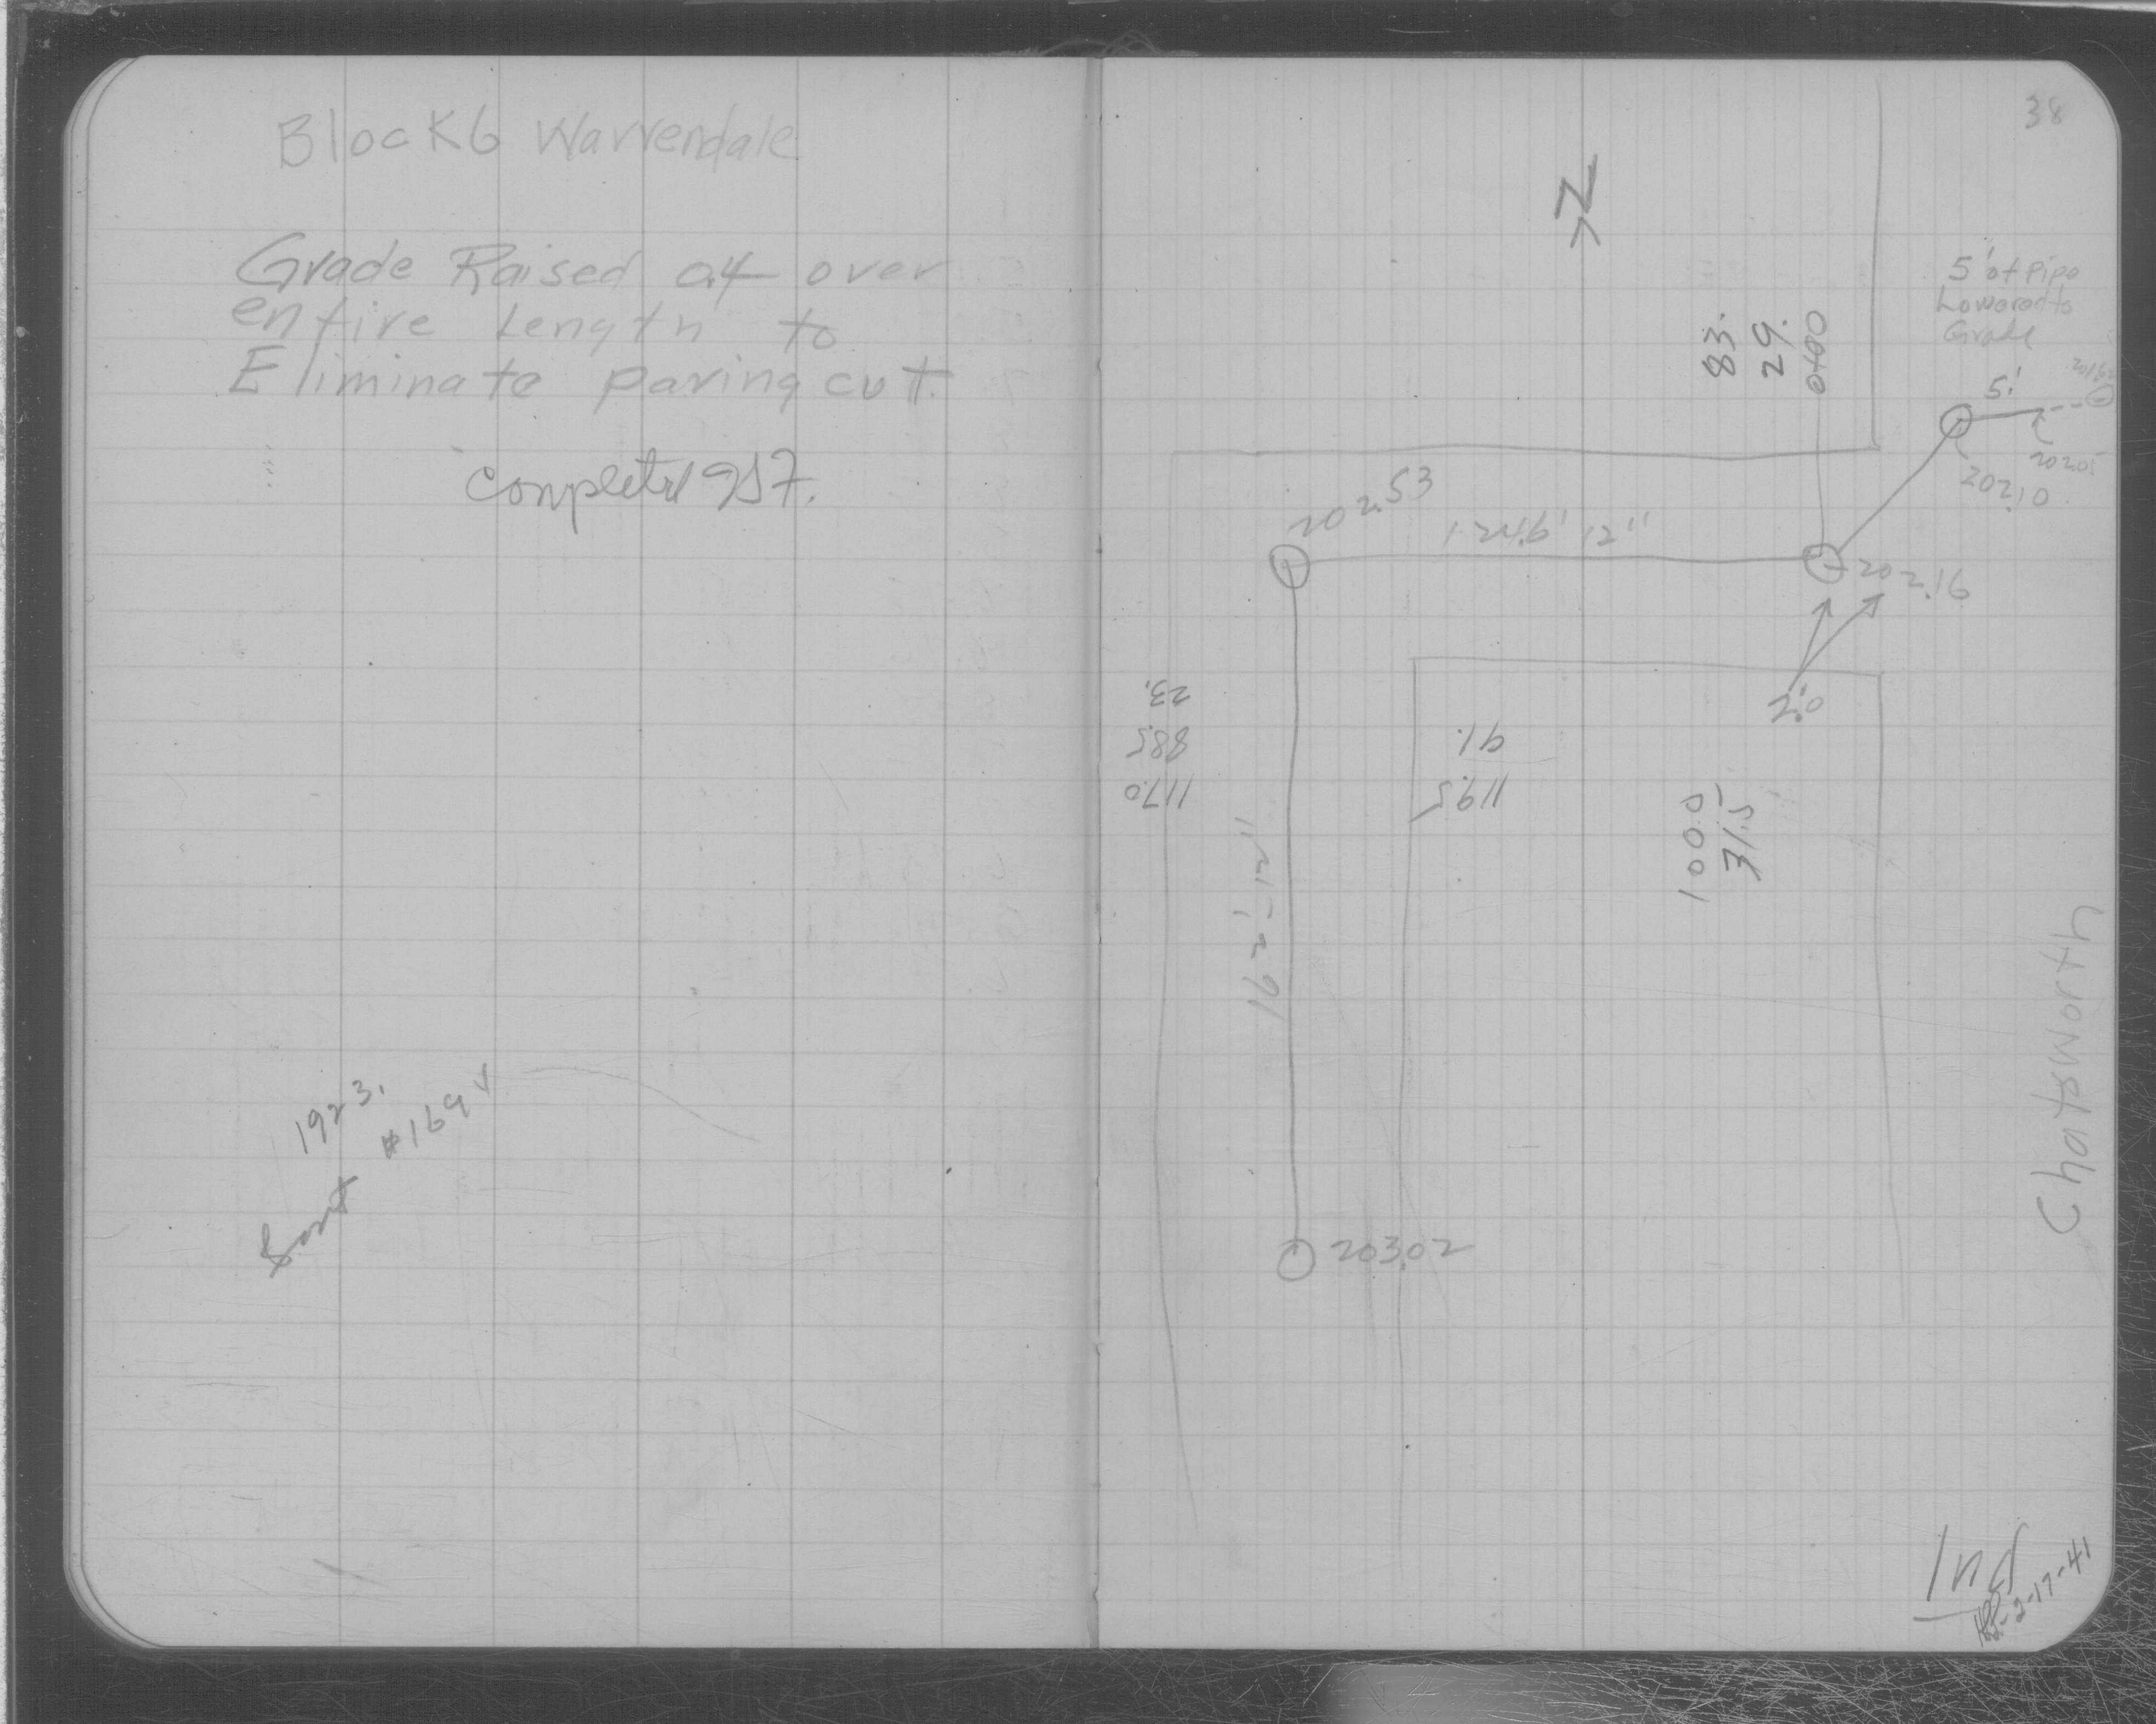 Block 6 Warrendale
Grade Raised 0.4 over
entire Length to
Eliminate paving cut.
1923.
#169
38
N
83.
29.
0+00
5' of Pipe
Lowered to
Grade
5.'
202.05
202.10
202.53
124.6' 12"
202.16
2.'0
23.
88.5
117.0
91.
119.5
162'-12"
100.5
31.5
203.02
Chatsworth
Ind
2-17-41